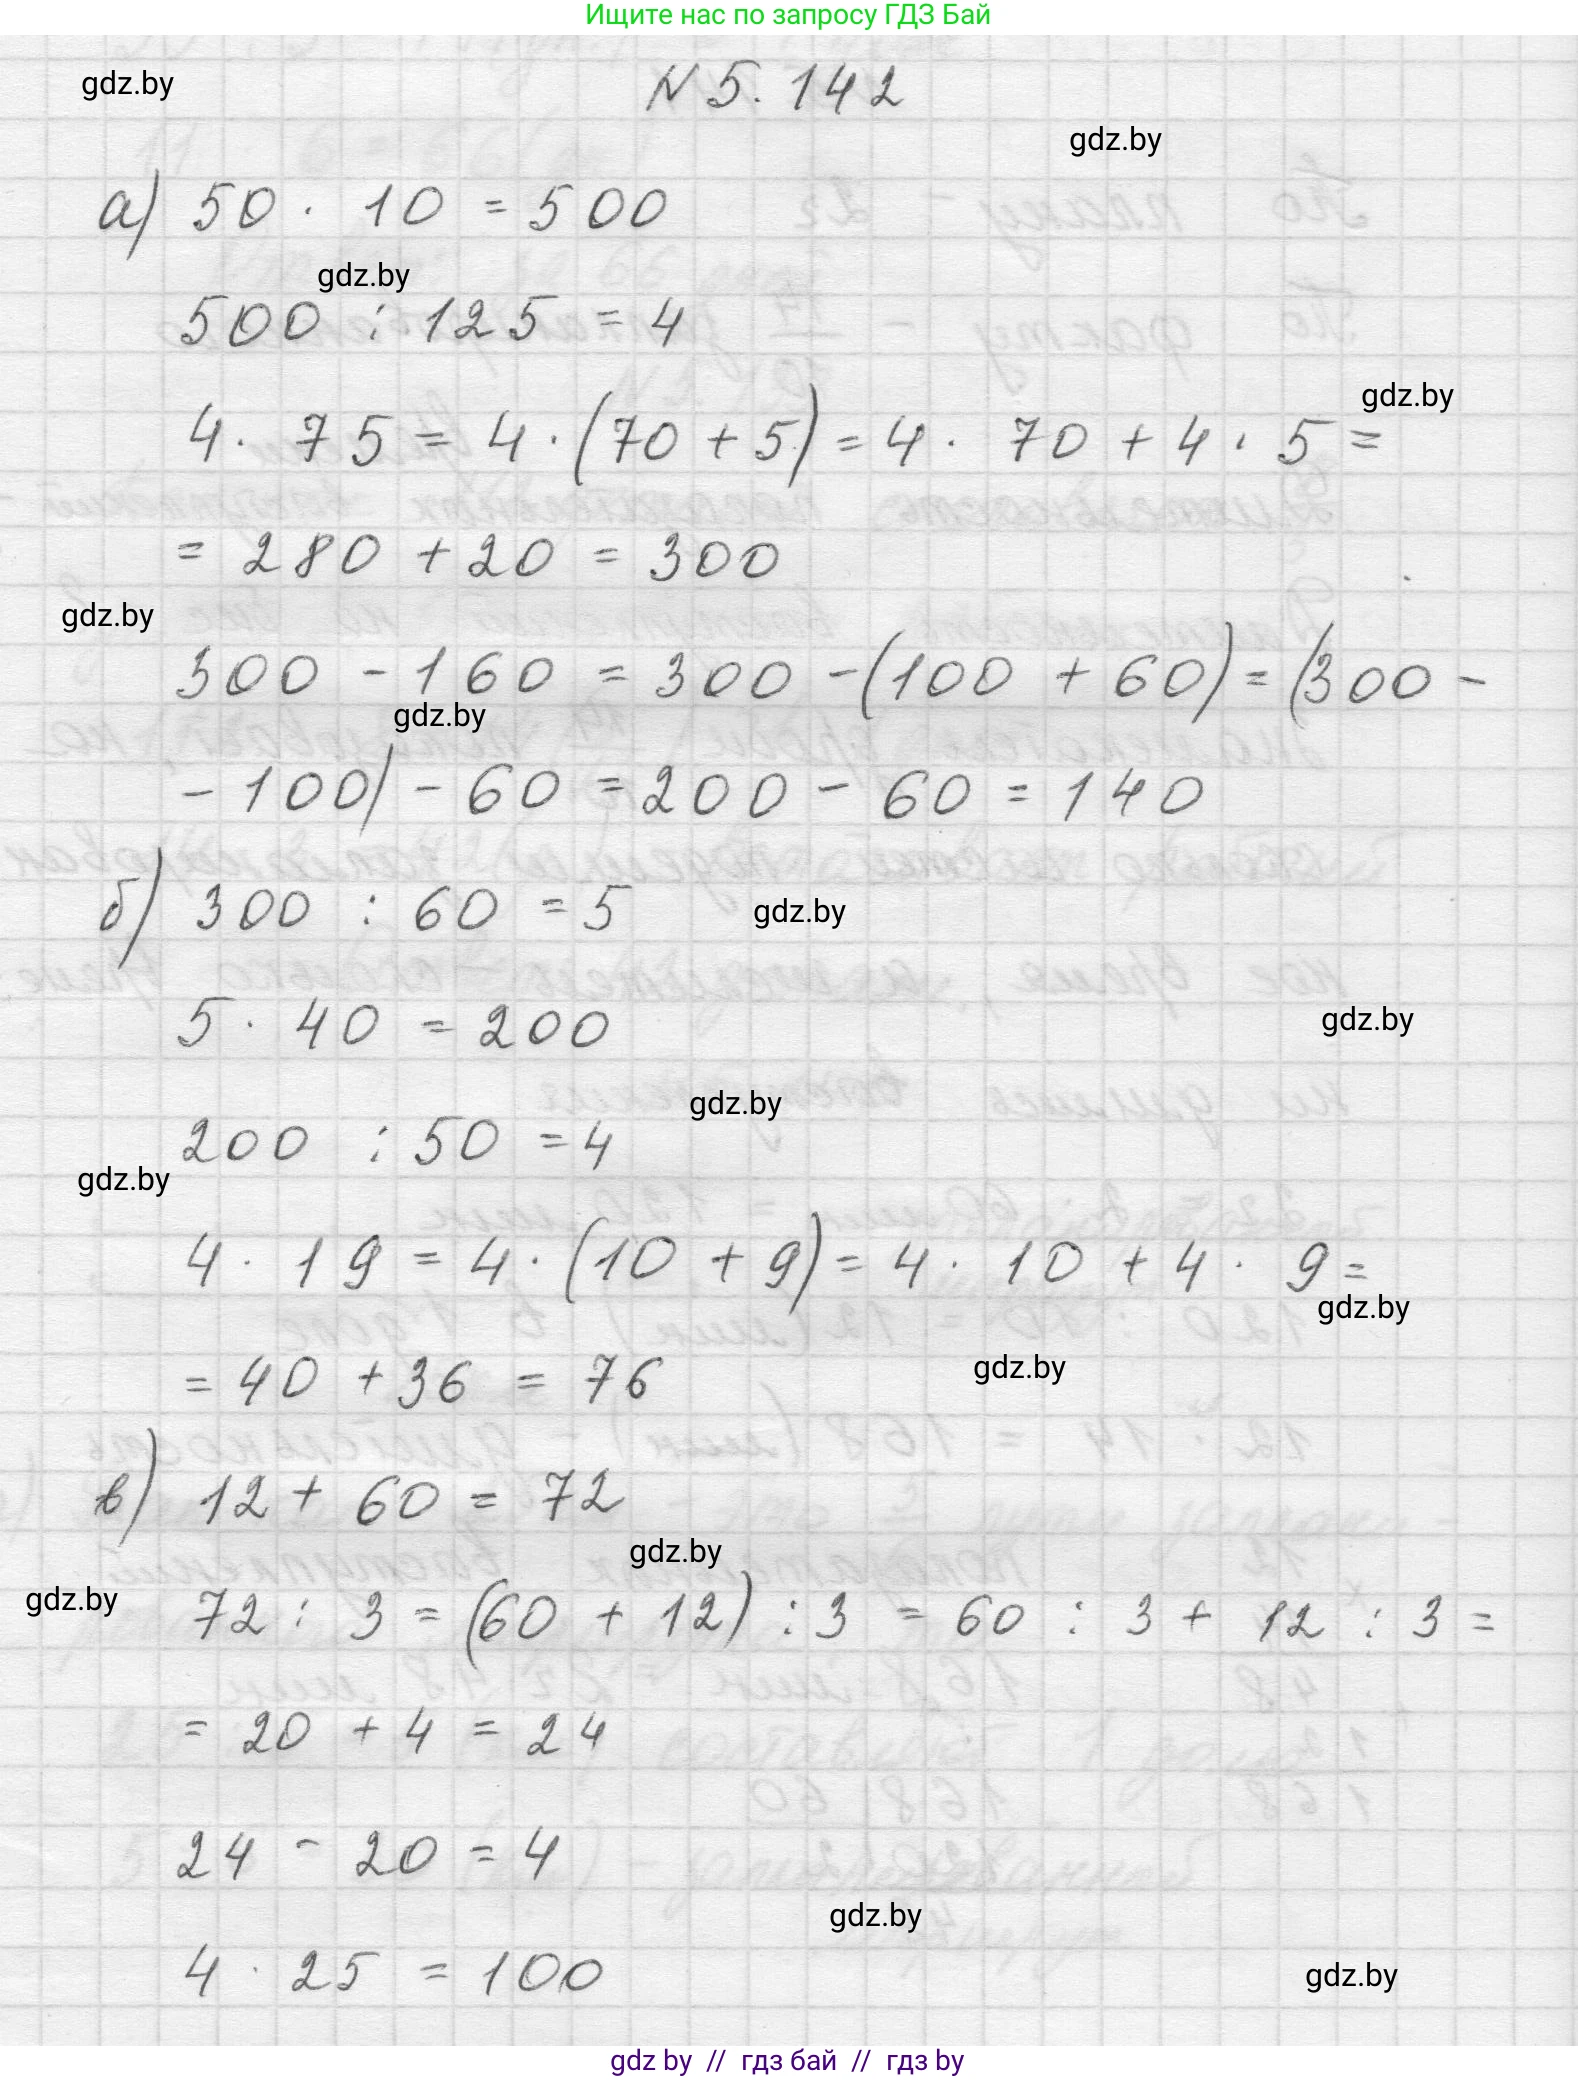 Ищите нас по запросу ГДЗ Бай
gdz.by
N 5. 142
gdz.by
а) 50 · 10 = 500
gdz.by
500 : 125 = 4
gdz.by
4 · 75 = 4 · (70 + 5) = 4 · 70 + 4 · 5 =
= 280 + 20 = 300
gdz.by
300 - 160 = 300 - (100 + 60) = (300 -
gdz.by
- 100) - 60 = 200 - 60 = 140
б) 300 : 60 = 5
gdz.by
5 · 40 = 200
gdz.by
gdz.by
200 : 50 = 4
gdz.by
4 · 19 = 4 · (10 + 9) = 4 · 10 + 4 · 9 =
gdz.by
gdz.by
= 40 + 36 = 76
в) 12 + 60 = 72
gdz.by
gdz.by
72 : 3 = (60 + 12) : 3 = 60 : 3 + 12 : 3 =
= 20 + 4 = 24
24 - 20 = 4
gdz.by
4 · 25 = 100
gdz.by
gdz by // гдз бай // гдз by